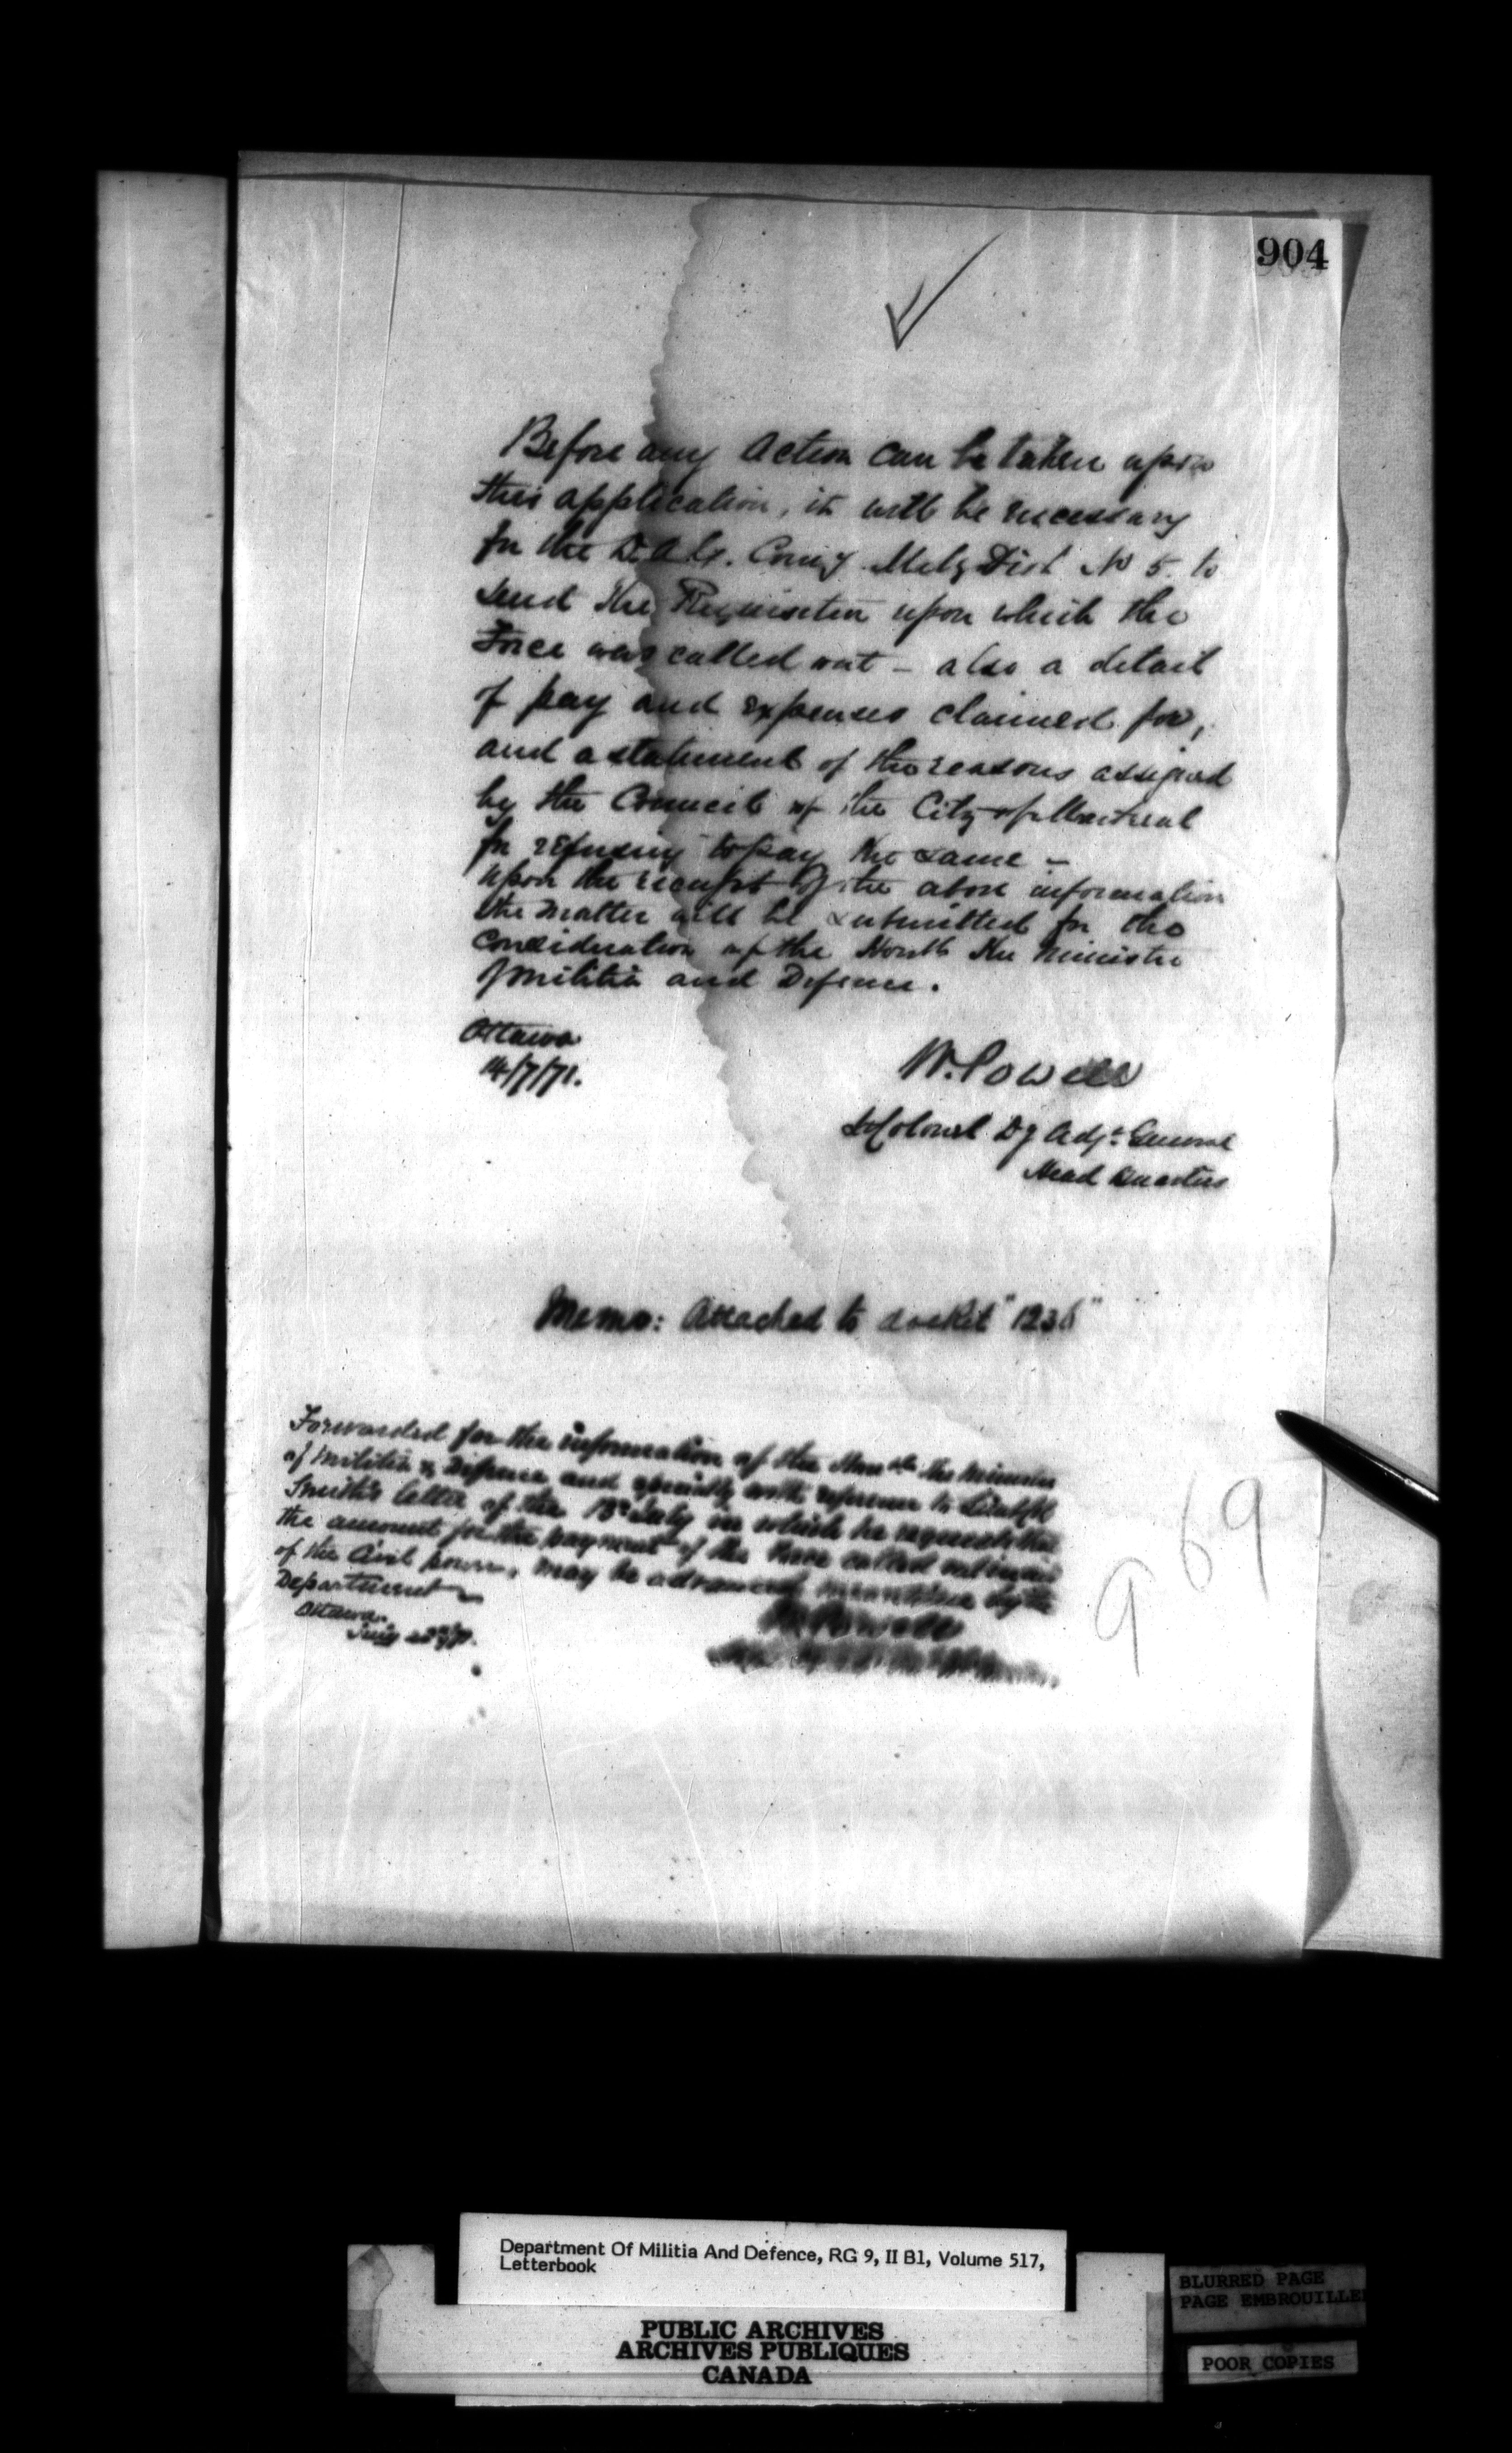 904
Before any Action can be taken upon
this application, it will be necessary
for the D.A.G. Com'g Mily Dist No 5. to
send the Requisition upon which the
Force was called out – also a detail
of pay and expenses claimed for,
and a statement of the reasons assigned
by the Council of the City of Montreal
for refusing to pay the same –
Upon the receipt of the above information
the matter will be submitted for the
consideration of the Honble the Minister
of Militia and Defence.
Ottawa
14/7/71.
W. Powell
Lt Colonel Dy Adjt General
Head Quarters
Memo: Attached to docket "1236"
Forwarded for the information of the Honble the Minister
of Militia & Defence and specially with reference to Lieut Col
Smith's letter of the 18th July in which he requests that
the amount for the payment of the Force called out in aid
of the Civil power, may be advanced meantime by the
Department
Ottawa
July
W Powell
969
Department Of Militia And Defence, RG 9, II B1, Volume 517,
Letterbook
PUBLIC ARCHIVES
ARCHIVES PUBLIQUES
CANADA
BLURRED PAGE
PAGE EMBROUILLE
POOR COPIES